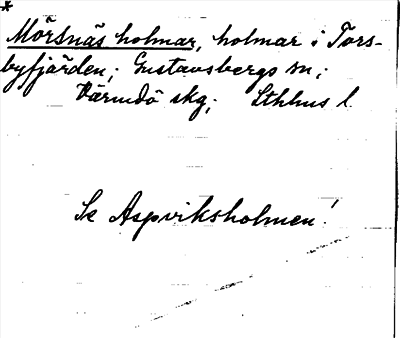 *
Mörsnäs holmar, holmar i Tors-
byfjärden; Gustavsbergs sn;
Värmdö skg; Sthlms l.
Se Aspviksholmen!